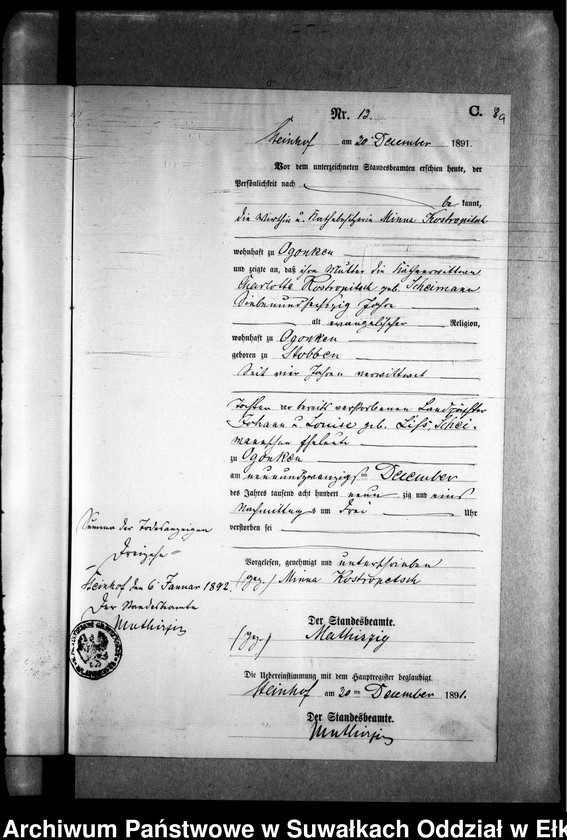 Nr. 12.
C.
Steinhof am 30 December 1891.
Vor dem unterzeichneten Standesbeamten erschien heute, der
Persönlichkeit nach
be kannt,
die Minna Kostropetsch
wohnhaft zu Ogonken
und zeigte an, daß ihre Mutter die
Charlotte Kostropetsch geb. Scheimann
Siebenundsechszig Jahre
alt evangelischer Religion,
wohnhaft zu Ogonken
geboren zu Stobben
Seit vier Jahren verwittwet
Tochter der bereits verstorbenen
Johann u Louise geb. Schei-
mannschen Eheleute
zu Ogonken
am neunundzwanzigsten December
des Jahres tausend acht hundert neun zig und eins
Nachmittags um drei Uhr
verstorben sei
Vorgelesen, genehmigt und unterschrieben
(gez.) Minna Kostropetsch
Der Standesbeamte.
(gez.) Mathiszig
Die Uebereinstimmung mit dem Hauptregister beglaubigt.
Steinhof am 30ten December 1891.
Der Standesbeamte.
Mathiszig
Summa der Todesanzeigen
Steinhof den 6 Januar 1892.
Der Standesbeamte
Mathiszig
Archiwum Państwowe w Suwałkach Oddział w Ełk